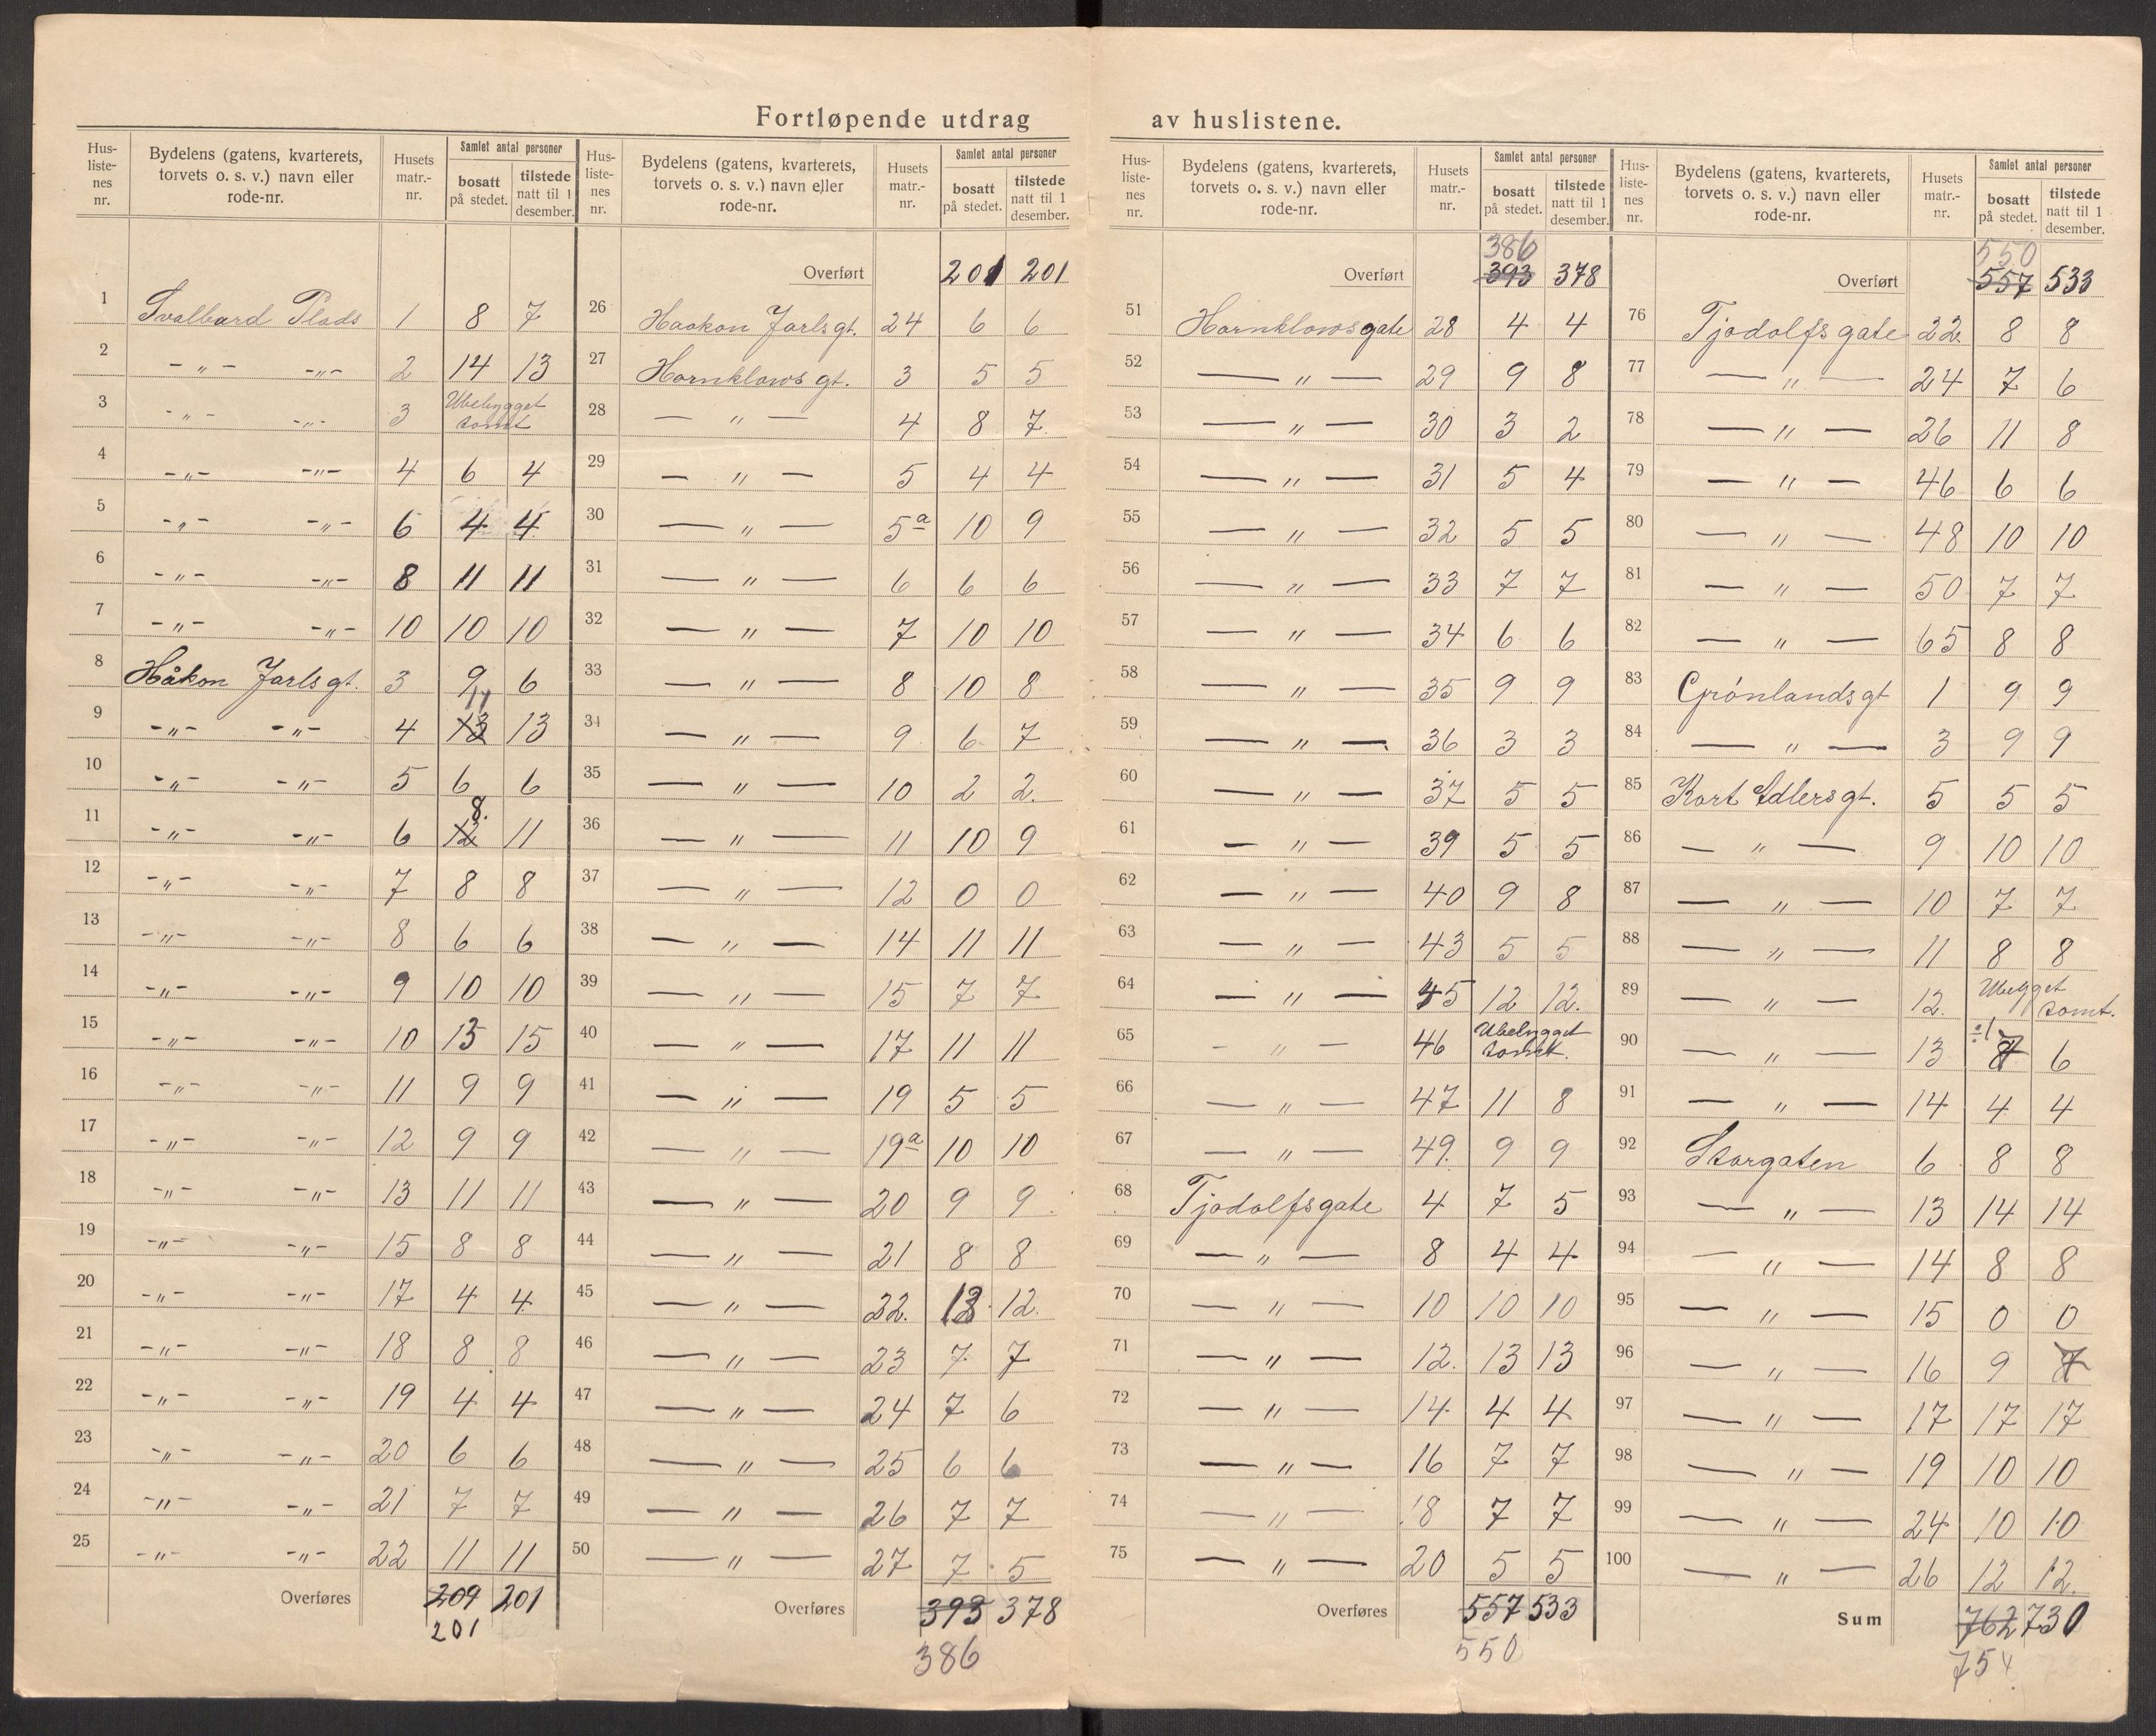 Fortløpende utdrag av huslistene.
Hus-listenes nr. | Bydelens (gatens, kvarterets, torvets o. s. v.) navn eller rode-nr. | Husets matr.-nr. | Samlet antal personer bosatt på stedet. | tilstede natt til 1 desember.
1 Svalbard Plads 1 8 7
2 -„- -„- 2 14 13
3 -„- -„- 3 Ubebygget tomt
4 -„- -„- 4 6 4
5 -„- -„- 6 4 4
6 -„- -„- 8 11 11
7 -„- -„- 10 10 10
8 Håkon Jarls gt. 3 9 6
9 -„- -„- 4 13 11 13
10 -„- -„- 5 6 6
11 -„- -„- 6 12 8. 11
12 -„- -„- 7 8 8
13 -„- -„- 8 6 6
14 -„- -„- 9 10 10
15 -„- -„- 10 13 15
16 -„- -„- 11 9 9
17 -„- -„- 12 9 9
18 -„- -„- 13 11 11
19 -„- -„- 15 8 8
20 -„- -„- 17 4 4
21 -„- -„- 18 8 8
22 -„- -„- 19 4 4
23 -„- -„- 20 6 6
24 -„- -„- 21 7 7
25 -„- -„- 22 11 11
Overføres 209 201
201
Hus-listenes nr. | Bydelens (gatens, kvarterets, torvets o. s. v.) navn eller rode-nr. | Husets matr.-nr. | Samlet antal personer bosatt på stedet. | tilstede natt til 1 desember.
Overført 201 201
26 Haakon Jarls gt. 24 6 6
27 Hornklows gt. 3 5 5
28 — „ — 4 8 7
29 — „ — 5 4 4
30 — „ — 5a 10 9
31 — „ — 6 6 6
32 — „ — 7 10 10
33 — „ — 8 10 8
34 — „ — 9 6 7
35 — „ — 10 2 2.
36 — „ — 11 10 9
37 — „ — 12 0 0
38 — „ — 14 11 11
39 — „ — 15 7 7
40 — „ — 17 11 11
41 — „ — 19 5 5
42 — „ — 19a 10 10
43 — „ — 20 9 9
44 — „ — 21 8 8
45 — „ — 22. 12.
46 — „ — 23 7 7
47 — „ — 24 7 6
48 — „ — 25 6 6
49 — „ — 26 7 7
50 — „ — 27 7 5
Overføres 393 378
386
Hus-listenes nr. | Bydelens (gatens, kvarterets, torvets o. s. v.) navn eller rode-nr. | Husets matr.-nr. | Samlet antal personer bosatt på stedet. | tilstede natt til 1 desember.
386
Overført 393 378
51 Hornklowsgate 28 4 4
52 — „ — 29 9 8
53 — „ — 30 3 2
54 — „ — 31 5 4
55 — „ — 32 5 5
56 — „ — 33 7 7
57 — „ — 34 6 6
58 — „ — 35 9 9
59 — „ — 36 3 3
60 — „ — 37 5 5
61 — „ — 39 5 5
62 — „ — 40 9 8
63 — „ — 43 5 5
64 — „ — 45 12 12.
65 — „ — 46 Ubebygget tomt.
66 — „ — 47 11 8
67 — „ — 49. 9 9
68 Tjodolfsgate 4 7 5
69 — „ — 8 4 4
70 — „ — 10 10 10
71 — „ — 12. 13 13
72 — „ — 14 4 4
73 — „ — 16 7 7
74 — „ — 18 7 7
75 — „ — 20 5 5
Overføres 557 533
550
Hus-listenes nr. | Bydelens (gatens, kvarterets, torvets o. s. v.) navn eller rode-nr. | Husets matr.-nr. | Samlet antal personer bosatt på stedet. | tilstede natt til 1 desember.
550
Overført 557 533
76 Tjodolfsgate 22. 8 8
77 — „ — 24 7 6
78 — „ — 26 11 8
79 — „ — 46 6 6
80 — „ — 48 10 10
81 — „ — 50 7 7
82 — „ — 65 8 8
83 Grønlandsgt 1 9 9
84 — „ — 3 9 9
85 Kort Adlersgt. 5 5 5
86 — „ — 9 10 10
87 — „ — 10 7 7
88 — „ — 11 8 8
89 — „ — 12. Ubebygget tomt.
90 — „ — 13 ÷1 6
91 — „ — 14 4 4
92 Storgaten 6 8 8
93 — „ — 13 14 14
94 — „ — 14 8 8
95 — „ — 15 0 0
96 — „ — 16 9
97 — „ — 17 17 17
98 — „ — 19 10 10
99 — „ — 24 10 10
100 — „ — 26 12 12.
Sum 762 730
754